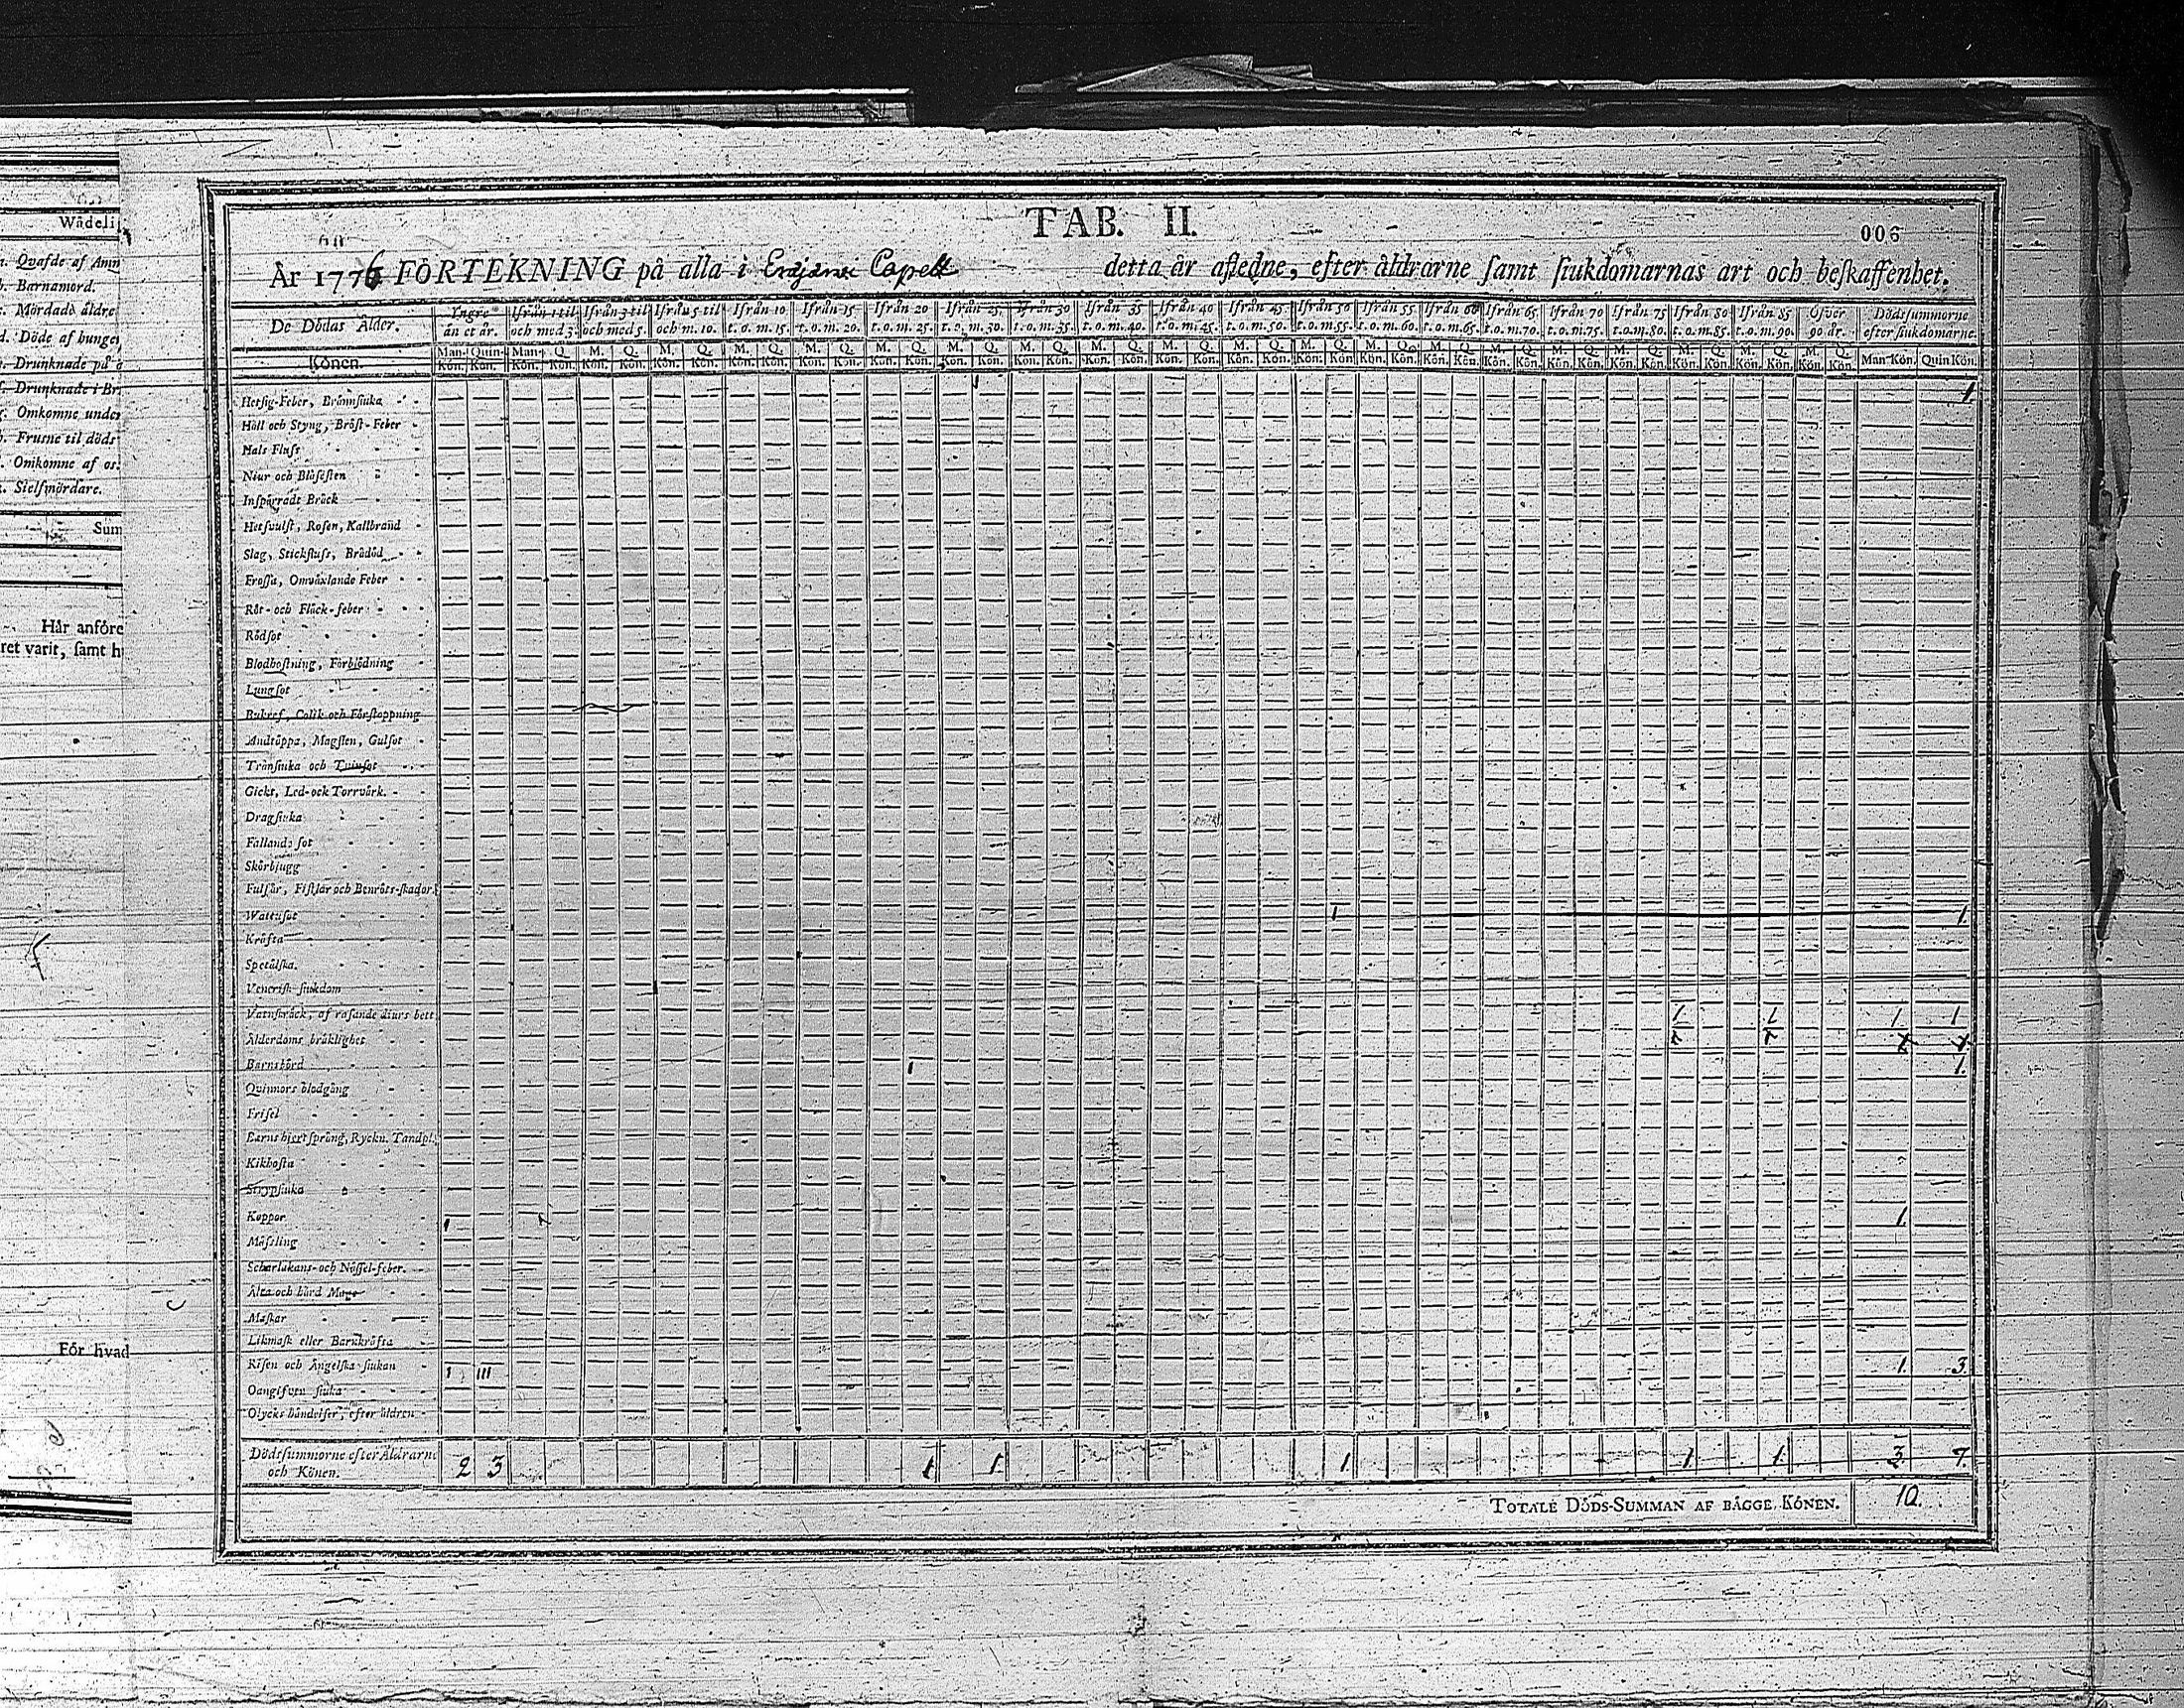 Wådelig
Qvafde af Amn
Barnamord.
Mördade åldre
Döde af hunger
Drunknade på
Drunknade i Br
Omkomne under
Frusne til döds
Omkomne af os.
Sielfmördare.
Sum
Hår anföre
ret varit, samt h
För hvad
TAB. II.
006
År 1776 FÖRTEKNING på alla i Capell detta år afledne, efter åldrarne samt siukdomarnas art och beskaffenhet.
De Dödas Ålder. Yngre än et år. Ifrån 1 til och med 3. Ifrån 3 til och med 5. Ifrån 5 til och m. 10. Ifrån 10 t. o. m. 15. Ifrån 15 t. o. m. 20. Ifrån 20 t. o. m. 25. Ifrån 25 t. o. m. 30. Ifrån 30 t. o. m. 35. Ifrån 35 t. o. m. 40. Ifrån 40 t. o. m. 45. Ifrån 45 t. o. m. 50. Ifrån 50 t. o. m. 55. Ifrån 55 t. o. m. 60. Ifrån 60 t. o. m. 65. Ifrån 65 t. o. m. 70. Ifrån 70 t. o. m. 75. Ifrån 75 t. o. m. 80. Ifrån 80 t. o. m. 85. Ifrån 85 t. o. m. 90. Öfver 90 år. Dödssummorne efter siukdomarne.
Könen. Man-Kön. Quin-Kön. Man-Kön. Q. Kön. M. Kön. Q. Kön. M. Kön. Q. Kön. M. Kön. Q. Kön. M. Kön. Q. Kön. M. Kön. Q. Kön. M. Kön. Q. Kön. M. Kön. Q. Kön. M. Kön. Q. Kön. M. Kön. Q. Kön. M. Kön. Q. Kön. M. Kön. Q. Kön. M. Kön. Q. Kön. M. Kön. Q. Kön. M. Kön. Q. Kön. M. Kön. Q. Kön. M. Kön. Q. Kön. M. Kön. Q. Kön. M. Kön. Q. Kön. M. Kön. Q. Kön. Man-Kön. Quin Kön.
Hetsig-Feber, Brånnsiuka 1 1
Håll och Styng, Bröst-Feber
Hals Fluss
Niur och Blåsesten
Inspårradt Bråck
Hetsvulst, Rosen, Kallbrand
Slag, Stickfluss, Brådöd
Frossa, Omvåxlande Feber
Röt- och Flåck-feber
Rödsot
Blodhostning, Förblödning
Lungsot
Bukref, Colik och Förstoppning
Andtåppa, Magsten, Gulsot
Trånsiuka och Tvinsot
Gickt, Led- ock Torrvårk.
Dragsiuka
Fallande sot
Skörbjugg
Fulsår, Fistlar och Benröts-skador
Wattusot 1 1.
Kråfta
Spetålska.
Venerisk siukdom
Vatuskråck, af rasande diurs bett 1 1 1 1
Ålderdoms bråklighet
Barnsbörd 1 1.
Quinnors blodgång
Frisel
Barns hjertsprång, Ryckn. Tandpl.
Kikhosta
Strypsiuka
Koppor 1 1.
Måssling
Scharlakans- och Nåssel-feber.
Ålta och hård Mage
Maskar
Likmask eller Barnkråfta
Risen och Ångelska siukan 1 III 1. 3
Oangifven siuka
Olycks håndelser, efter åldren
Dödssummorne efter Åldrarne och Könen. 2 3 1 1. 1 1 1. 3. 7.
TOTALE DÖDS-SUMMAN AF BÅGGE KÖNEN. 10.